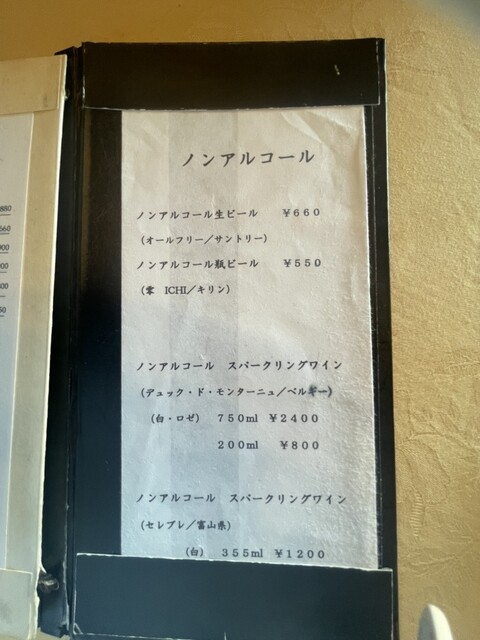 880
660
ノンアルコール
ノンアルコール生ビール　￥６６０
（オールフリー／サントリー）
ノンアルコール瓶ビール　￥５５０
（零　ICHI／キリン）
ノンアルコール　スパークリングワイン
（デュック・ド・モンターニュ／ベルギー）
（白・ロゼ）　７５０ml　￥２４００
２００ml　￥８００
ノンアルコール　スパークリングワイン
（セレブレ／富山県）
（白）　３５５ml　￥１２００